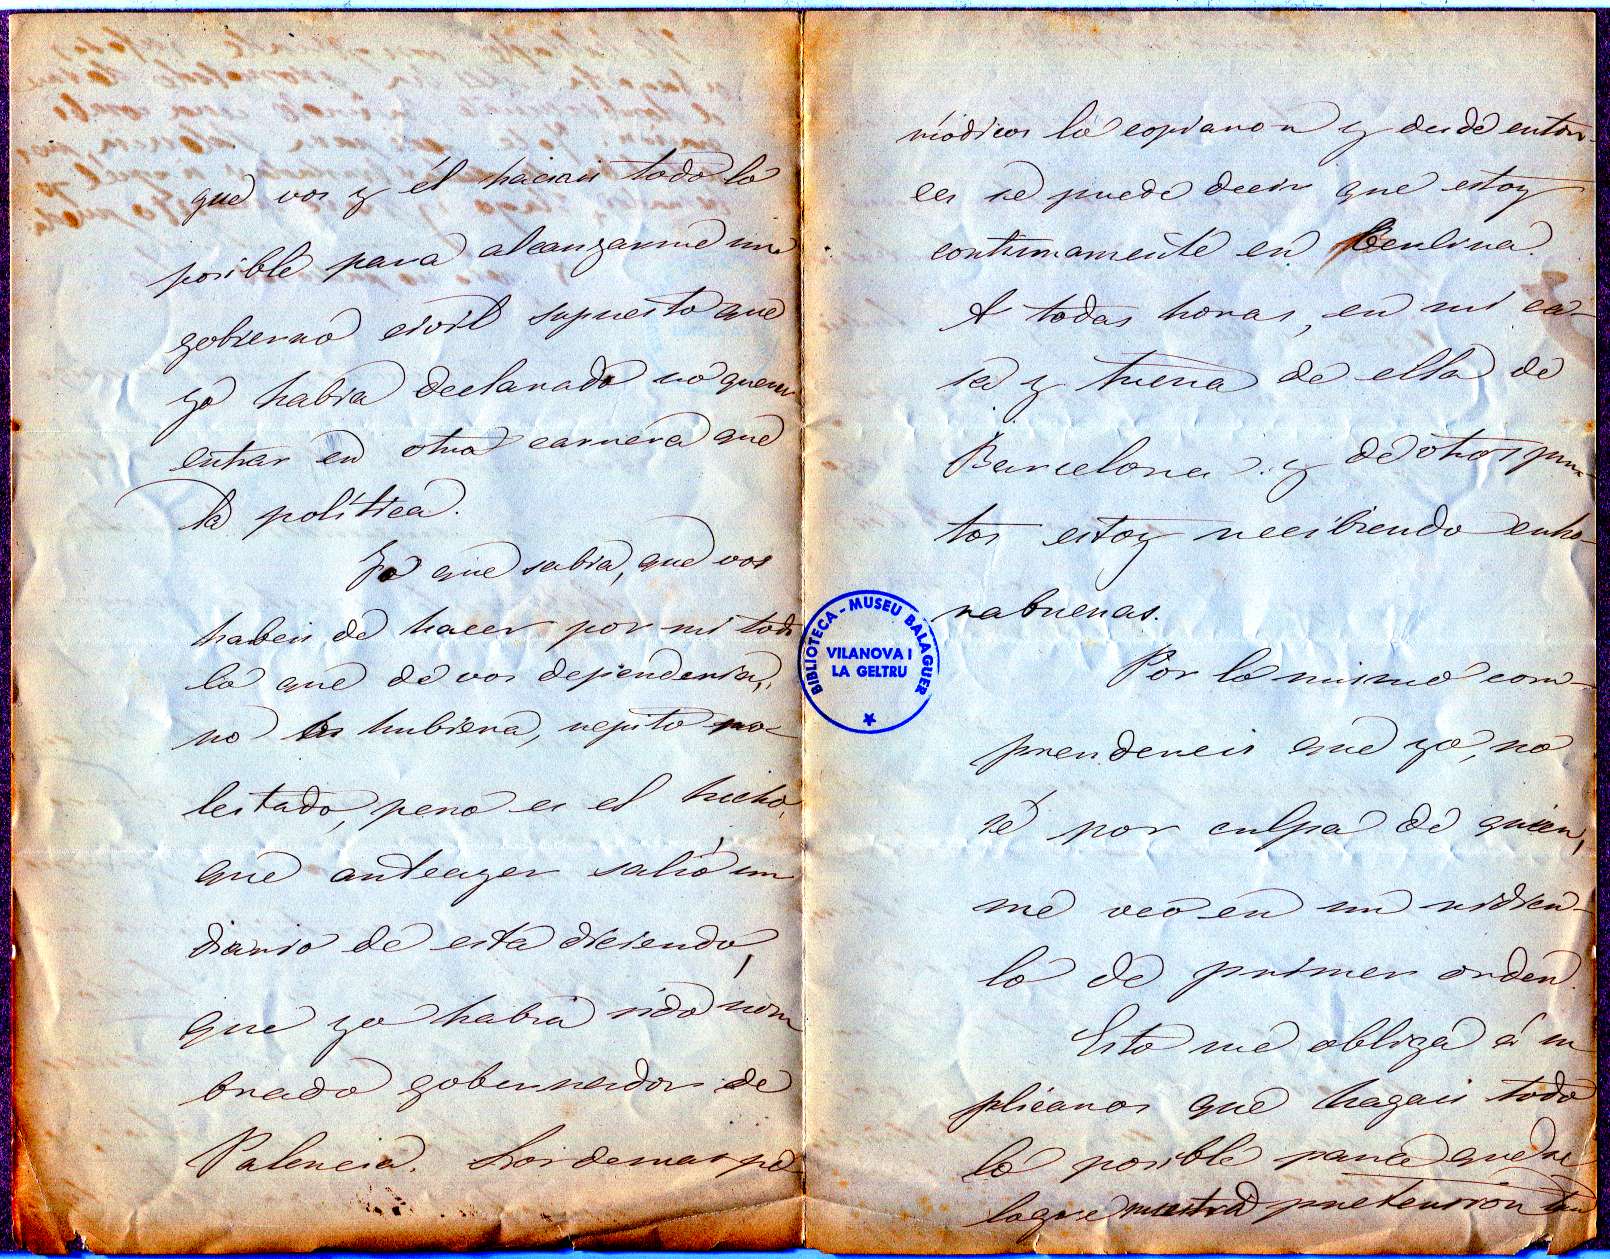 que vos y él haciais todo lo
posible para alcanzarme un
gobierno civil supuesto que
yo habia declarado no querer
entrar en otra carrera que
la política.
Yo que sabia, que vos
habeis de hacer por mi todo
lo que de vos dependeria,
no os hubiera, repito mo-
lestado, pero es el hecho,
que anteayer salió un
diario de esta diciendo,
que yo habia sido nom
brado gobernador de
Palencia. Los demas pe-
riódicos lo copiaron y desde enton-
ces se puede decir que estoy
continuamente en berlina.
A todas horas, en mi ca-
sa y fuera de ella de
Barcelona y de otros pun-
tos estoy recibiendo enho-
rabuenas.
Por lo mismo com-
prendereis que yo, no
sé por culpa de quien,
me veo en un ridicu-
lo de primer orden.
Esto me obliga á su
plicaros que hagais todo
lo posible para que se
logre nuestra pretension
BIBLIOTECA - MUSEU BALAGUER
VILANOVA I
LA GELTRU